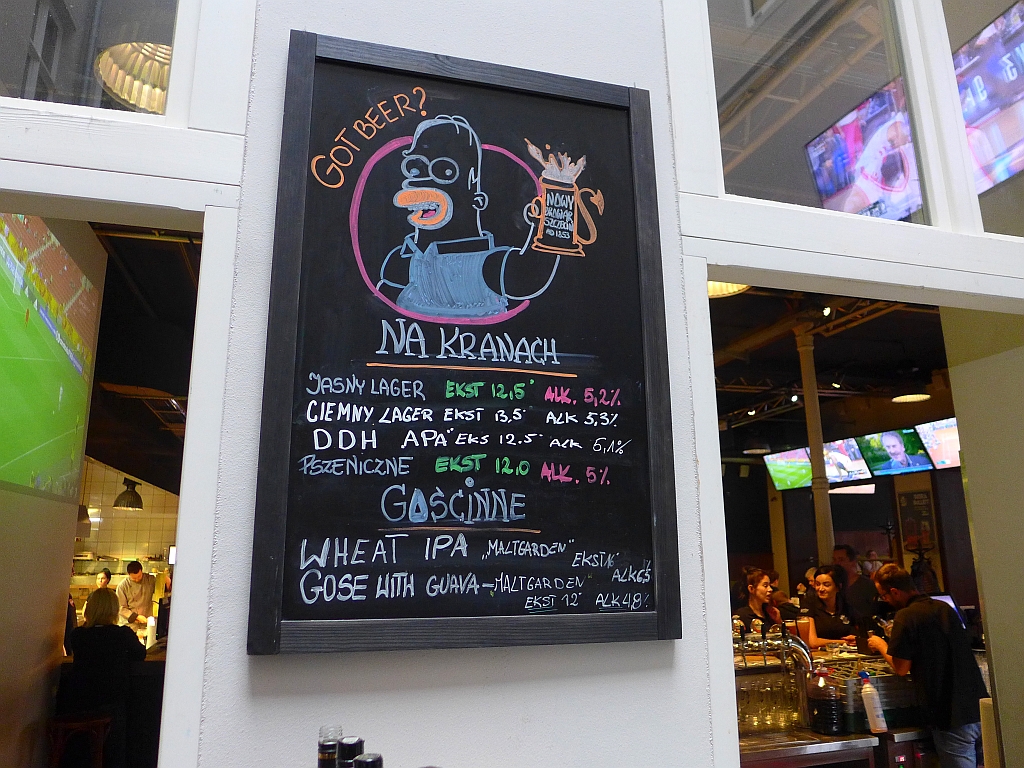 GOT BEER?
NOWY
BROWAR
SZCZECIN
OD 12.53
NA KRANACH
JASNY LAGER EKST 12,5° ALK. 5,2%
CIEMNY LAGER EKST 13,5° ALK 5,3%
DDH APA EKS 12.5° ALK 5,1%
PSZENICZNE EKST 12,0 ALK. 5%
GOŚCINNE
WHEAT IPA „MALTGARDEN" EKST 16° ALK 6,5%
GOSE WITH GUAVA – MALTGARDEN"
EKST 12° ALK 4,8%